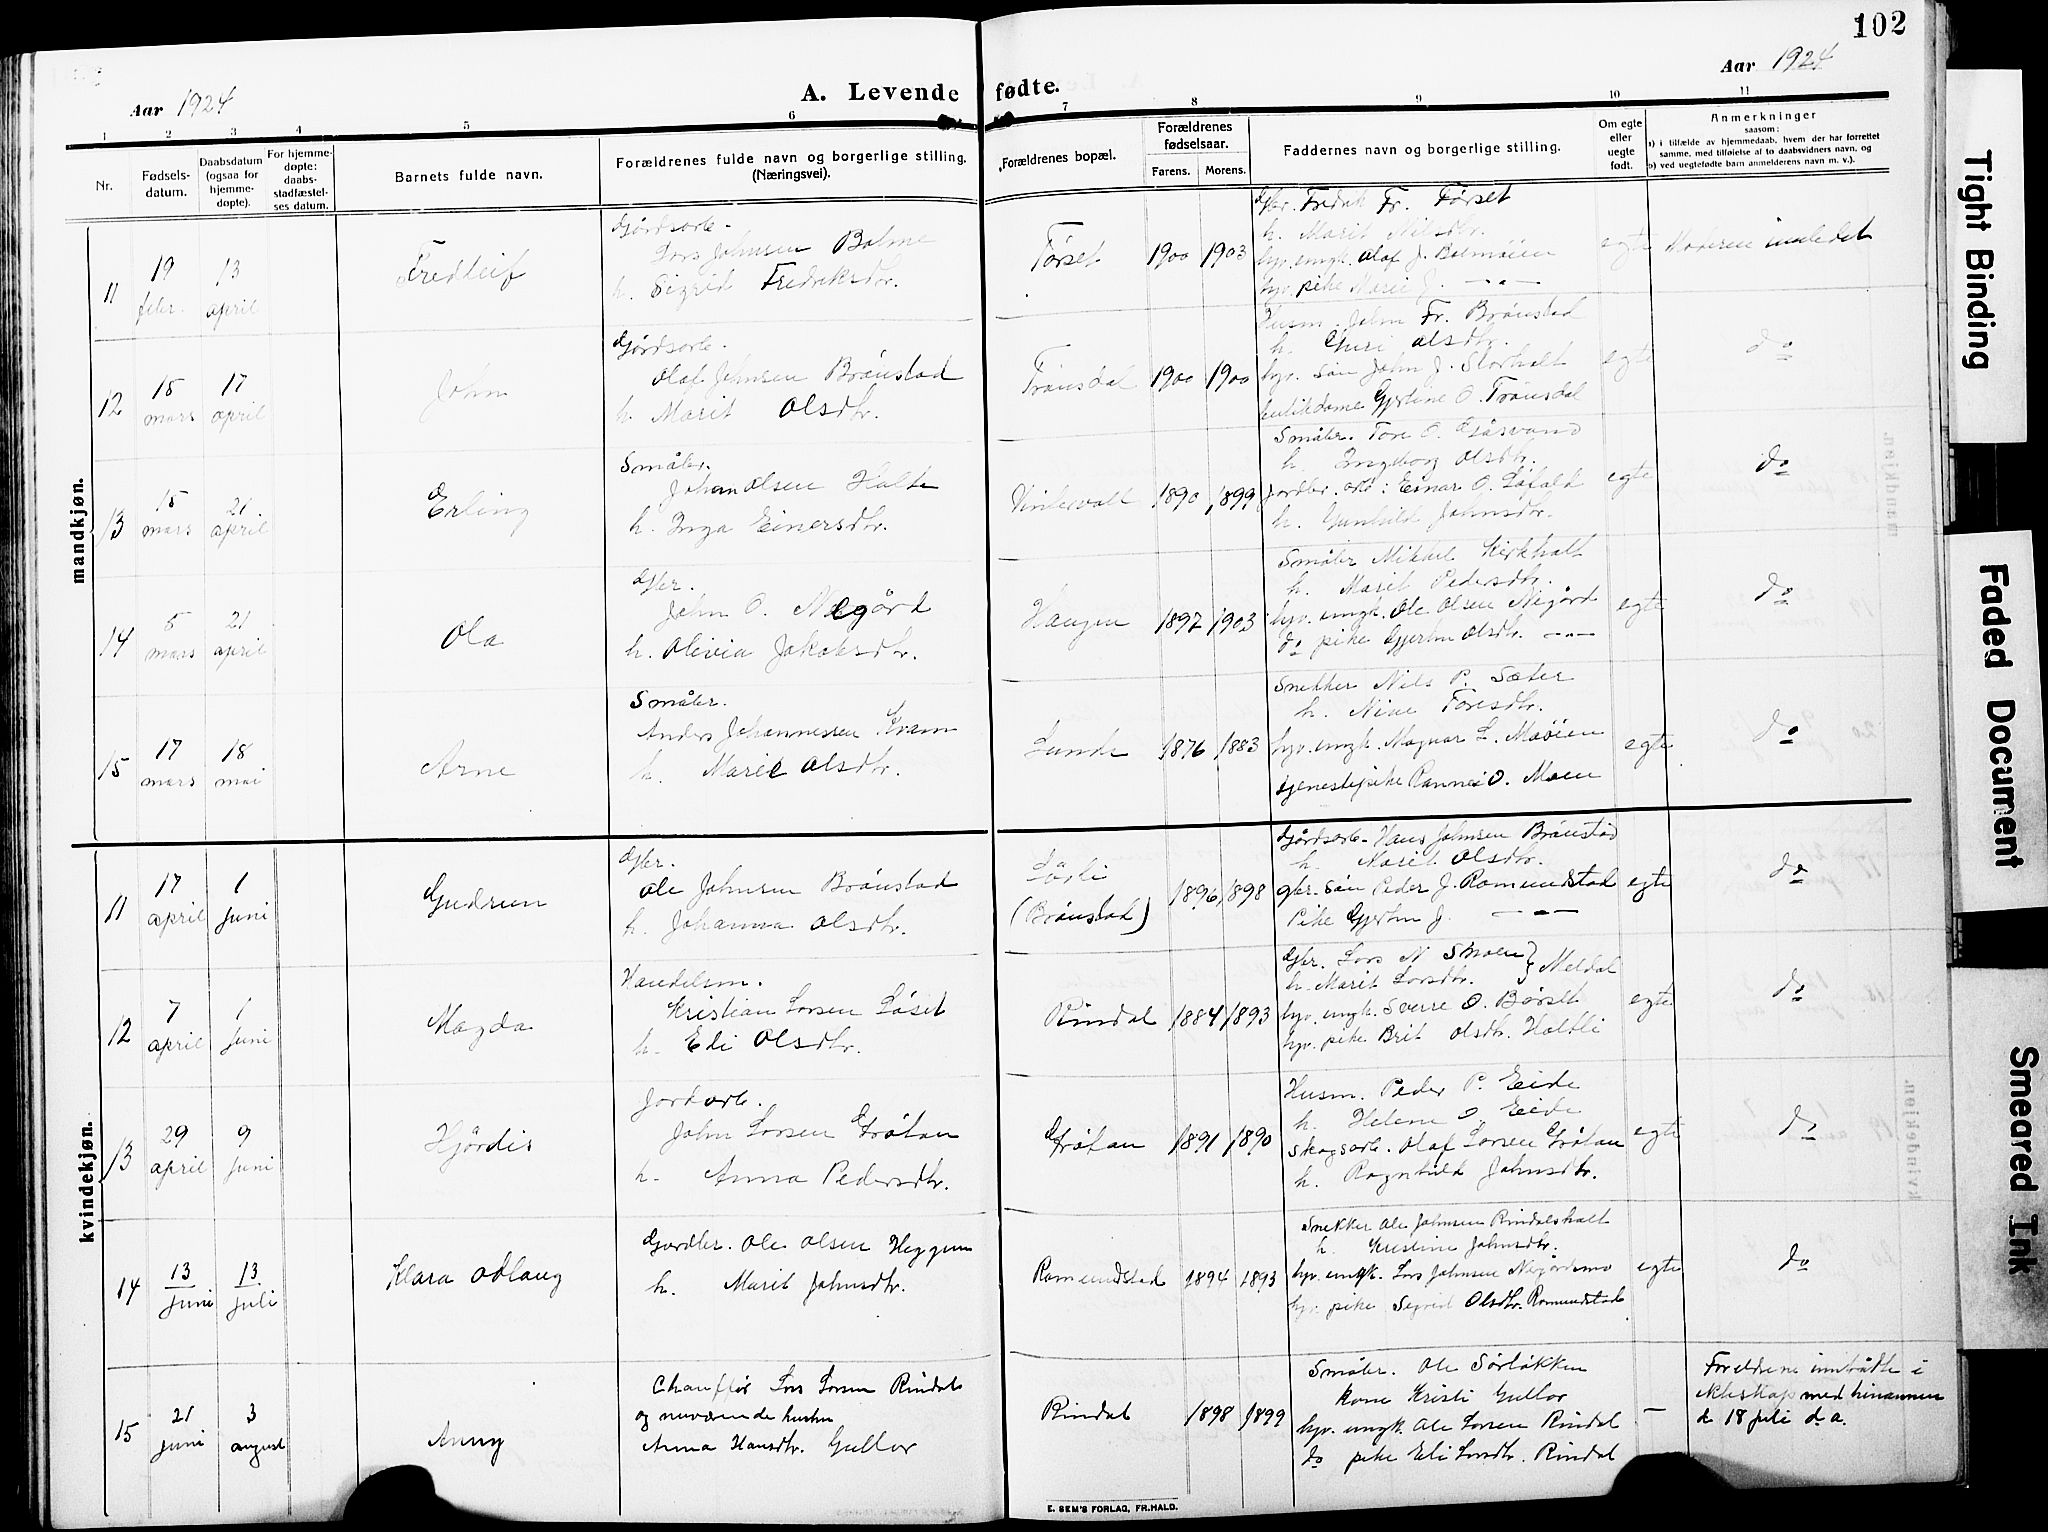 102
Aar 1924
A. Levende fødte.
Aar 1924
1 2 3 4 5 6 7 8 9 10 11
Nr.
Fødsels-
datum.
Daabsdatum
(ogsaa for
hjemme-
døpte).
For hjemme-
døpte:
daabs-
stadfæstel-
ses datum.
Barnets fulde navn.
Forældrenes fulde navn og borgerlige stilling.
(Næringsvei).
Forældrenes bopæl.
Forældrenes
fødselsaar.
Farens. Morens.
Faddernes navn og borgerlige stilling.
Om egte
eller
uegte
født.
Anmerkninger
saasom:
a) i tilfælde av hjemmedaab, hvem der har forrettet
samme, med tilføielse af to daabsvidners navn, og
b) ved uegtefødte barn anmelderens navn m. v.).
mandkjøn.
11
19
febr.
13
april
Fredleif
Gårdsarb.
Lars Johnsen Bolme
h. Sigrid Fredriksdtr.
Førset
1900 1903
Gbr. Fredrik Fr. Førset
h. Marit Nilsdtr.
hjv. ungk. Olaf J. Bolmøien
hjv. pike Marie J. -"-
egte
Moderen innledet
12
18
mars
17
april
John
Gårdsarb.
Olaf Johnsen Brønstad
h. Marit Olsdtr.
Trønsdal
1900 1900
Husm. John Fr. Brønstad
h. Guri Olsdtr.
hjv. søn John J. Storholt
butikdame Gjertine O. Trønsdal
egte
do
13
15
mars
21
april
Erling
Småbr.
Johan Olsen Holte
h. Inga Einersdtr.
Vintervolt
1890 1899
Småbr. Tore O. Gåsvand
h. Ingeborg Olsdtr.
jordbr. arb: Einar O. Løfald
h. Gunhild Johnsdtr.
egte
do
14
5
mars
21
april
Ola
Gbr.
John O. Negård
h. Olivia Jakobsdtr.
Haugen
1897 1903
Småbr Mikael Kirkholt
h. Marit Pedersdtr.
hjv. ungk. Ole Olsen Negård
do pike Gjertru Olsdtr. -"-
egte
do
15
17
mars
18
mai
Arne
Småbr.
Anders Johannessen Kvam
h. Marie Olsdtr.
Lunde
1876 1883
Snekker Nils P. Sæter
h. Nine Toresdtr.
hjv. ungk. Magnar L. Moøien
tjenestepike Rannei O. Moen
egte
do
kvindekjøn.
11
17
april
1
juni
Gudrun
Gbr.
Ole Johnsen Brønstad
h. Johanna Olsdtr.
(Brønstad)
1896 1898
Gårdsarb. Hans Johnsen Brønstad
h. Marit Olsdtr.
gbr. søn Peder J. Romundstad
Pike Gjertru J. -"-
egte
do
12
7
april
1
juni
Magda
Handelsm.
Kristian Larsen Løset
h. Eli Olsdtr.
Rindal
1884 1893
Gbr. Lars N Skoen } Meldal
h. Marit Larsdtr.
hjv. ungk. Sverre O. Børset
hjv. pike Brit Olsdtr. Holtli
egte
do
13
29
april
9
juni
Hjørdis
Jordarb.
John Larsen Grøtan
h. Anna Pedersdtr.
Grøtan
1891 1890
Husm. Peder P. Eide
h. Helene O Eide
Skogsarb. Olaf Larsen Grøtan
h. Ragnhild Johnsdtr.
egte
do
14
13
juni
13
juli
Klara Odlaug
Gardbr. Ole Olsen Heggem
h. Marit Johnsdtr.
Romundstad
1894 1893
Snekker Ole Johnsen Rindalsholt
h. Kristine Johnsdtr.
hjv. ungk. Lars Johnsen Negårdsmo
hjv. pike Sigrid Olsdtr. Romundstad
egte
do
15
21
juni
3
august
Anny
Chauffør Lars Larsen Rindal
og nuværende hustru
Anna Hansdtr. Gullor
Rindal
1898 1899
Småbr. Ole Sørløkken
kone Kristi Gullor
hjv. ungk. Ole Larsen Rindal
do pike Eli Larsdtr. Rindal
—
Foreldrene inntrådte i
ekteskap med hinannen
d. 18 juli d.a.
E. SEM'S FORLAG, FR.HALD.
Tight Binding
Faded Document
Smeared Ink